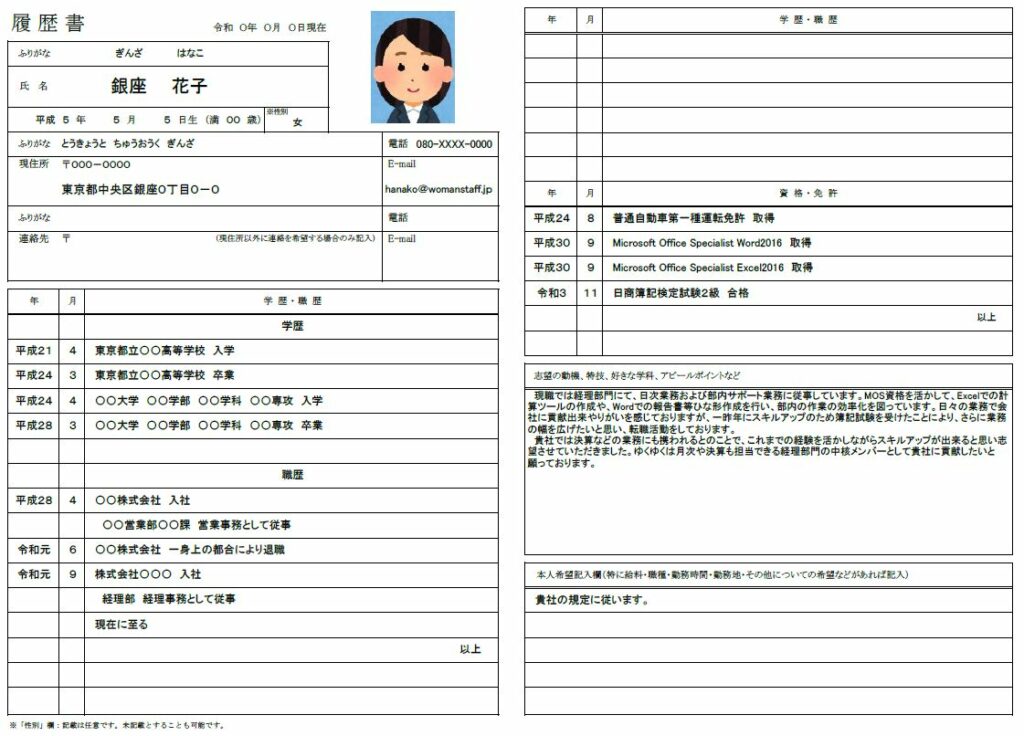 履歴書
令和 ○年 ○月 ○日現在
ふりがな ぎんざ はなこ
氏 名 銀座 花子
平成 5 年 5 月 5 日生 (満 ○○ 歳) ※性別 女
ふりがな とうきょうと ちゅうおうく ぎんざ 電話 080-XXXX-0000
現住所 〒○○○-○○○○ E-mail
東京都中央区銀座○丁目○-○ hanako@womanstaff.jp
ふりがな 電話
連絡先 〒 (現住所以外に連絡を希望する場合のみ記入) E-mail
年 月 学歴・職歴
学歴
平成21 4 東京都立○○高等学校 入学
平成24 3 東京都立○○高等学校 卒業
平成24 4 ○○大学 ○○学部 ○○学科 ○○専攻 入学
平成28 3 ○○大学 ○○学部 ○○学科 ○○専攻 卒業
職歴
平成28 4 ○○株式会社 入社
○○営業部○○課 営業事務として従事
令和元 6 ○○株式会社 一身上の都合により退職
令和元 9 株式会社○○○ 入社
経理部 経理事務として従事
現在に至る
以上
※「性別」欄:記載は任意です。未記載とすることも可能です。
年 月 学歴・職歴
年 月 資格・免許
平成24 8 普通自動車第一種運転免許 取得
平成30 9 Microsoft Office Specialist Word2016 取得
平成30 9 Microsoft Office Specialist Excel2016 取得
令和3 11 日商簿記検定試験2級 合格
以上
志望の動機、特技、好きな学科、アピールポイントなど
現職では経理部門にて、日次業務および部内サポート業務に従事しています。MOS資格を活かして、Excelでの計
算ツールの作成や、Wordでの報告書等ひな形作成を行い、部内の作業の効率化を図っています。日々の業務で会
社に貢献出来やりがいを感じておりますが、一昨年にスキルアップのため簿記試験を受けたことにより、さらに業務
の幅を広げたいと思い、転職活動をしております。
貴社では決算などの業務にも携われるとのことで、これまでの経験を活かしながらスキルアップが出来ると思い志
望させていただきました。ゆくゆくは月次や決算も担当できる経理部門の中核メンバーとして貴社に貢献したいと
願っております。
本人希望記入欄(特に給料・職種・勤務時間・勤務地・その他についての希望などがあれば記入)
貴社の規定に従います。